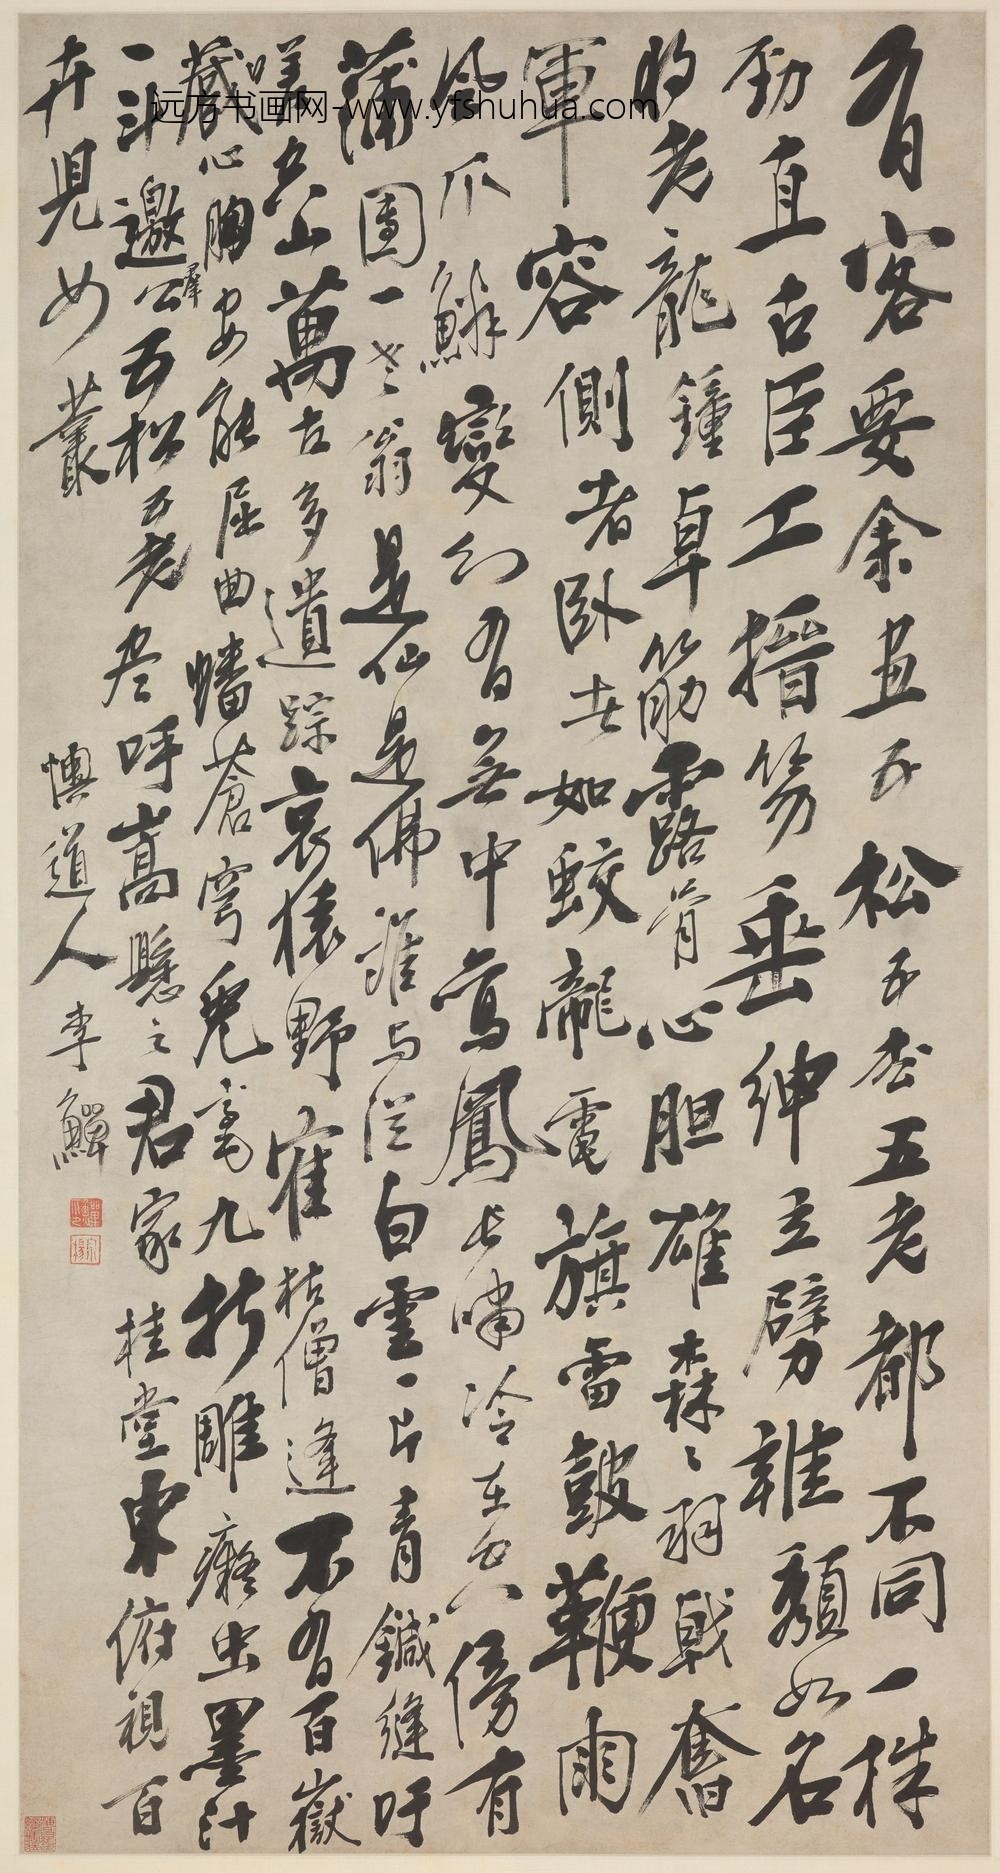 有客要余画五松五松五老都不同一株
劲直古臣工搢笏垂绅立劈谁颓如名
将老龍鍾卓筋露骨心胆雄森森羽戟奮
軍容側者卧者如蛟龍電旗雷鼓鞭雨
風爪鱗變幻有無中鸞鳳長嘯冷在空傍有
蒲團一老翁是仙是佛誰与從白雲一片青鍼縫吁
嗟空山萬古多遺踪哀猿野寉枯僧逢不有百嶽
藏心胸安能屈曲蟠蒼穹兔毫九折雕癡虫墨汁
一斗邀公筆五松五老尽呼嵩懸之君家桂堂東俯視百
卉児女叢
懊道人李鱓
远方书画网-www.yfshuhua.com